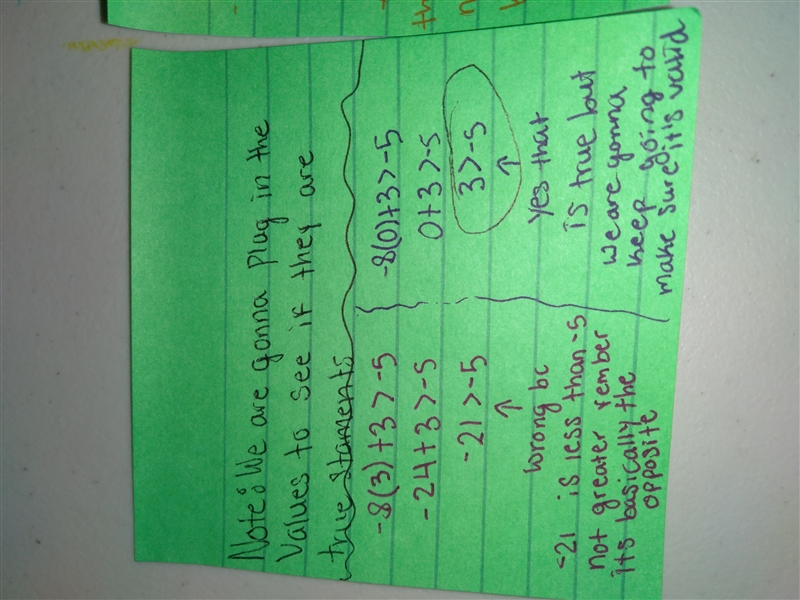 Note: We are gonna plug in the
values to see if they are
true staments
-8(3)+3>-5
-24+3>-5
-21>-5
↑
wrong bc
-21 is less than -5
not greater rember
its basically the
opposite
-8(0)+3>-5
0+3>-5
3>-5
↑
yes that
is true but
we are gonna
keep going to
make sure it's valid